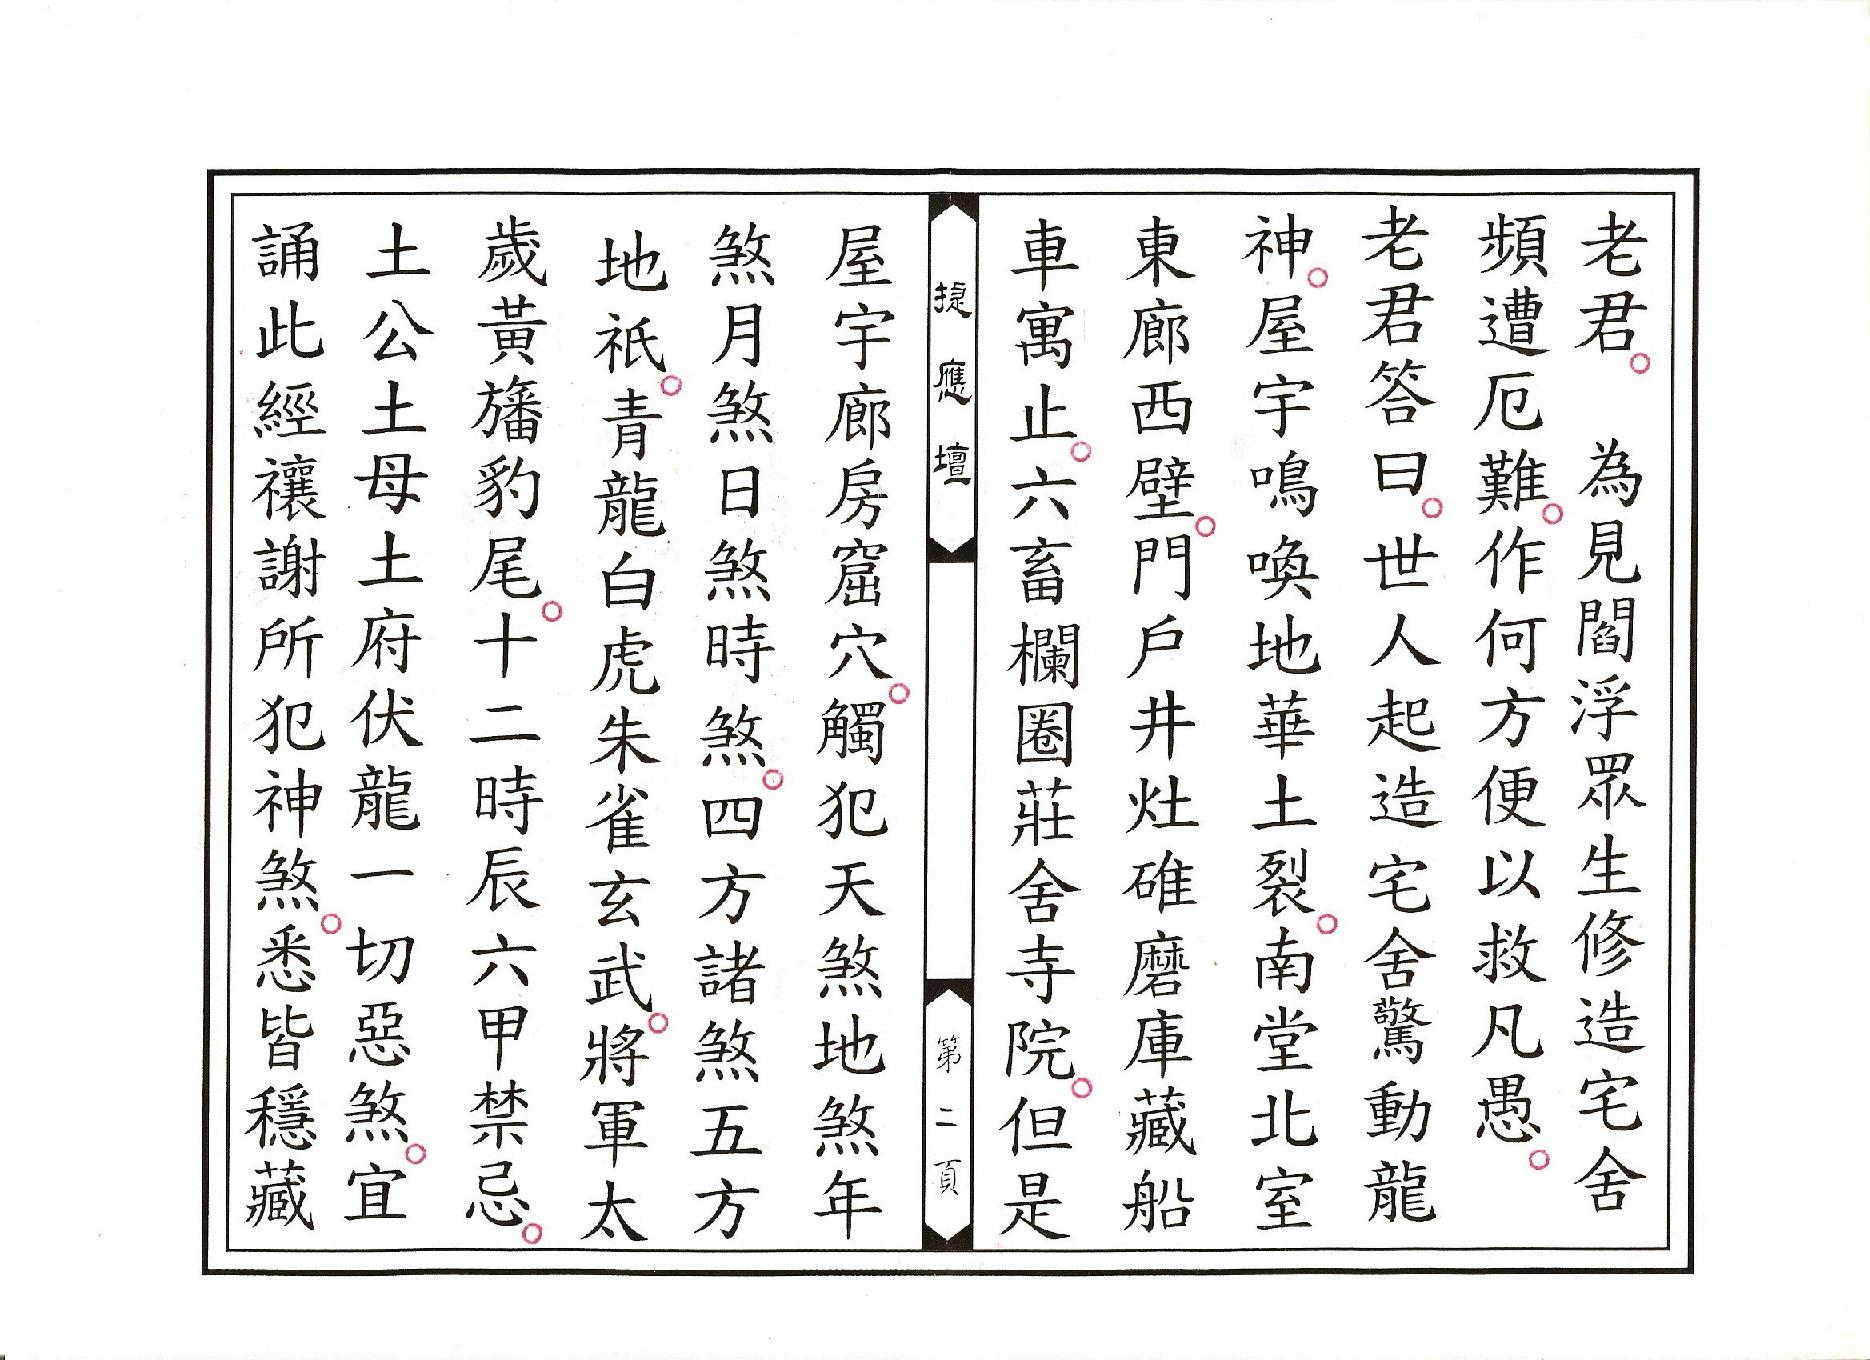 老君。　為見閻浮眾生修造宅舍
頻遭厄難。作何方便以救凡愚。
老君答曰。世人起造宅舍驚動龍
神。屋宇鳴喚地華土裂。南堂北室
東廊西壁。門戶井灶碓磨庫藏船
車寓止。六畜欄圈莊舍寺院。但是
捷應壇
第二頁
屋宇廊房窟穴。觸犯天煞地煞年
煞月煞日煞時煞。四方諸煞五方
地祇。青龍白虎朱雀玄武。將軍太
歲黃旛豹尾。十二時辰六甲禁忌。
土公土母土府伏龍一切惡煞。宜
誦此經禳謝所犯神煞。悉皆穩藏